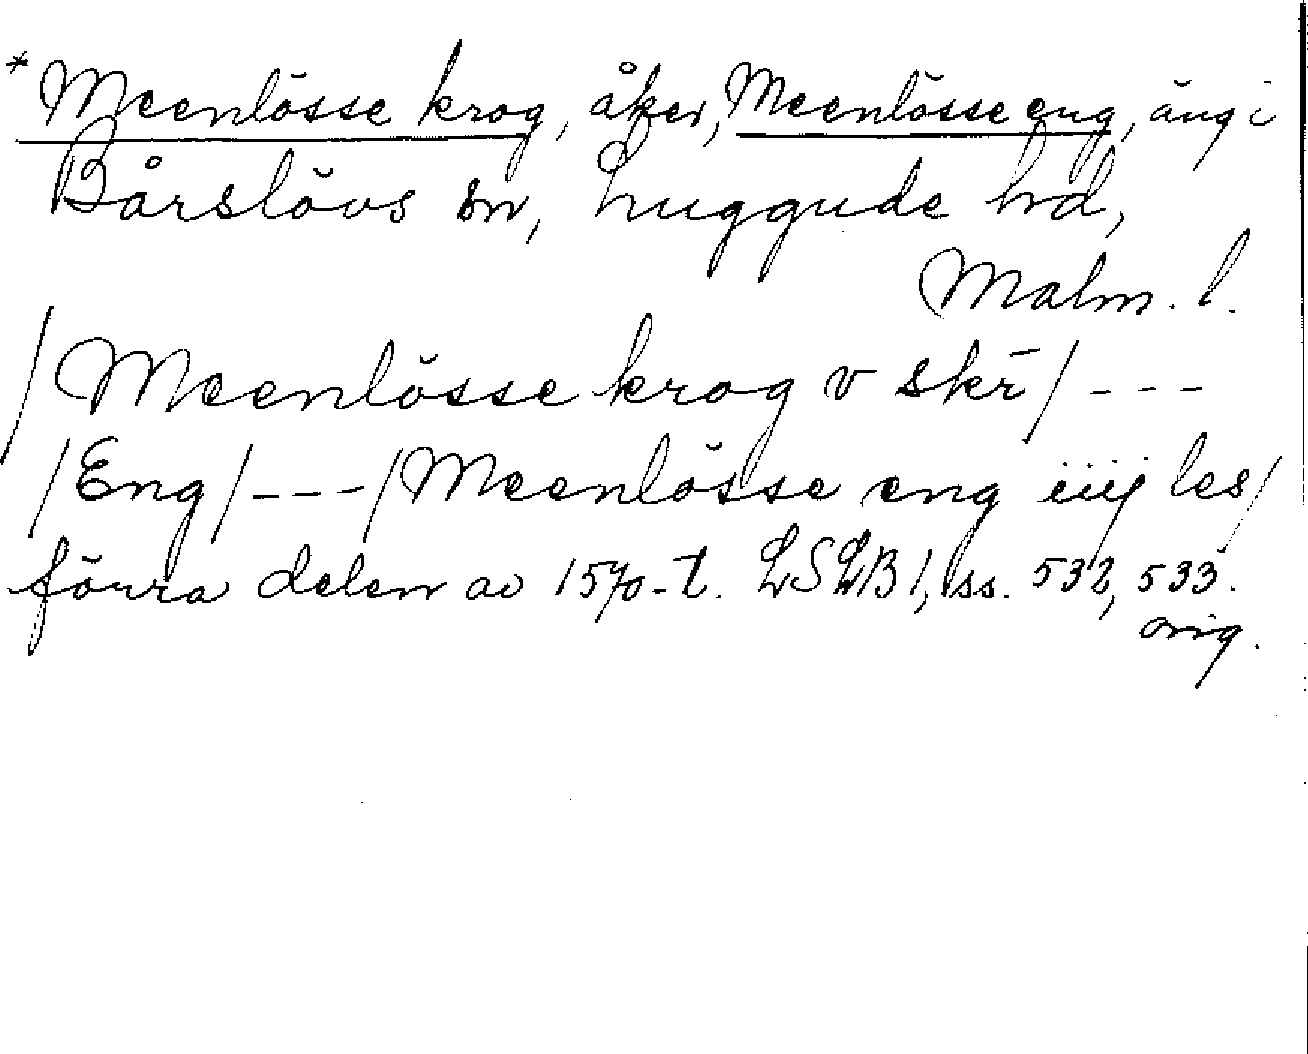 * Meenlösse krog, åker, Meenlösse eng, äng i
Bårslövs sn, Luggude hd,
Malm. l.
/Meenlösse krog v skr̄/ ---
/Eng/ --- /Meenlösse eng iiij les/
förra delen av 1570-t. LSLB 1, ss. 532, 533.
orig.